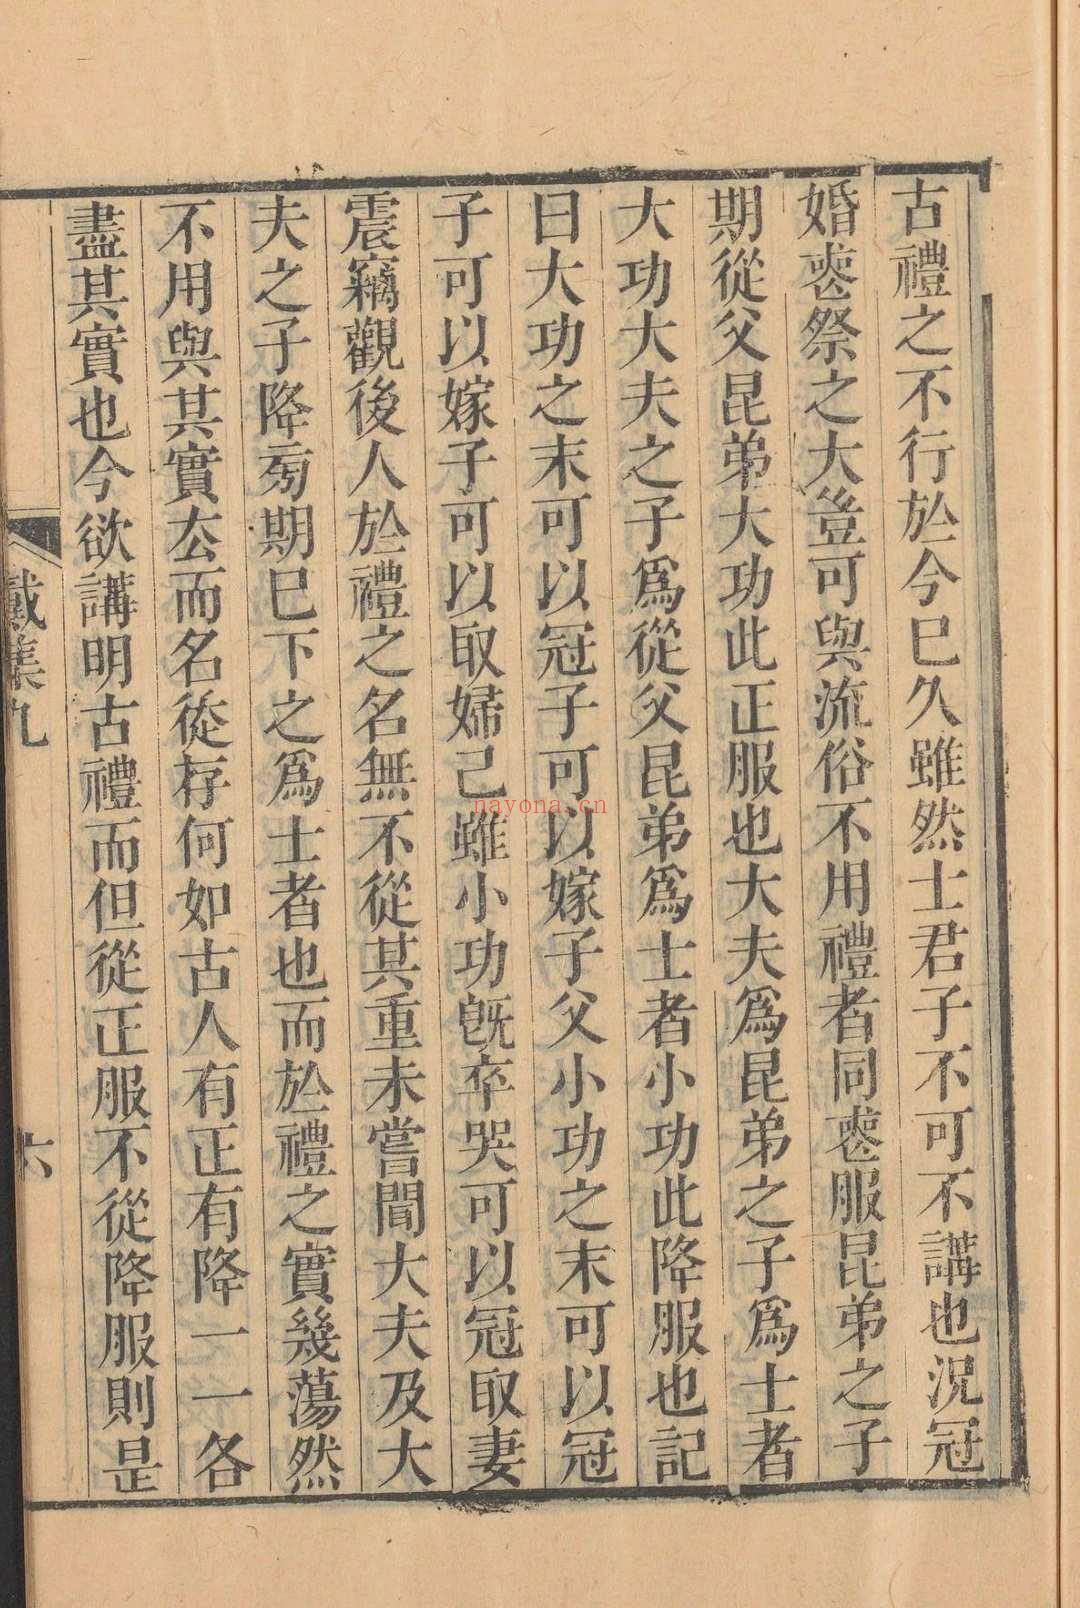 古禮之不行於今已久雖然士君子不可不講也況冠
婚喪祭之大豈可與流俗不用禮者同喪服昆弟之子
期從父昆弟大功此正服也大夫爲昆弟之子爲士者
大功大夫之子爲從父昆弟爲士者小功此降服也記
曰大功之末可以冠子可以嫁子父小功之末可以冠
子可以嫁子可以取婦己雖小功旣卒哭可以冠取妻
震竊觀後人於禮之名無不從其重未嘗聞大夫及大
夫之子降旁期已下之爲士者也而於禮之實幾蕩然
不用與其實去而名從存何如古人有正有降一一各
盡其實也今欲講明古禮而但從正服不從降服則是
戴集九
六
nayona.cn